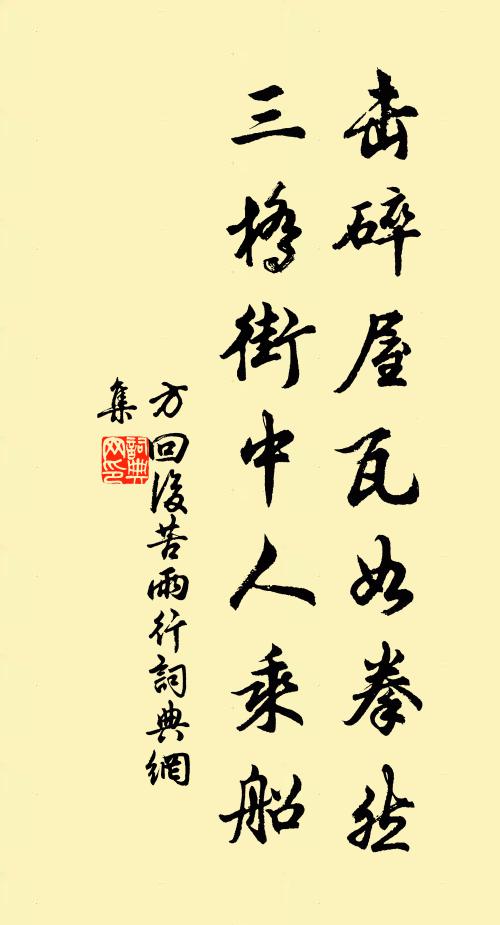 击碎屋瓦如拳然
三橋街中人乘船
方回後苦雨行詞典網
集
詞典网印